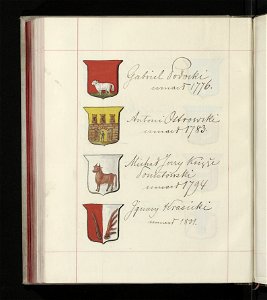 Gabriel Podoski
umarł 1776.
Antoni Ostrowski
umarł 1783
Michał Jerzy Książe
Poniatowski
umarł 1794
Ignacy Krasicki
umarł 1801.